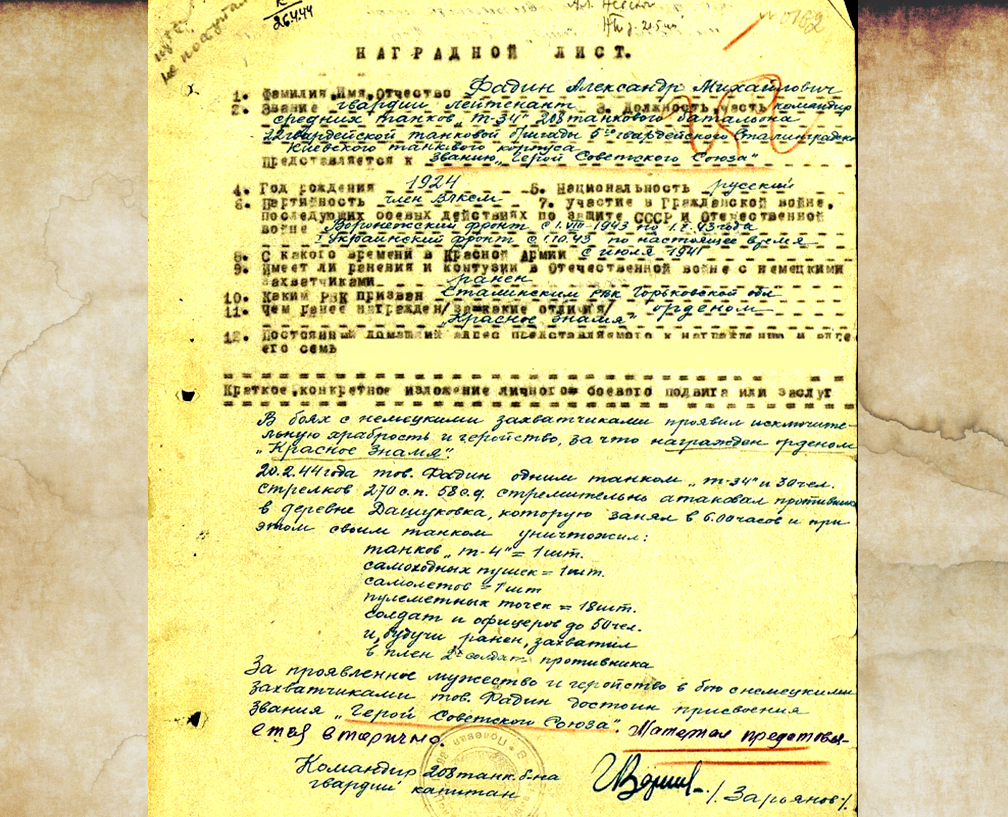 26.4.44
не
№ 0162
НАГРАДНОЙ ЛИСТ.
1. Фамилия, Имя, Отчество Фадин Александр Михайлович
2. Звание гвардии лейтенант 3. Должность, часть командир
средних танков „Т-34" 208 танкового батальона
22 гвардейской танковой бригады 5го гвардейского Сталинградско
Киевского танкового корпуса
Представляется к званию „Герой Советского Союза"
4. Год рождения 1924 5. Национальность русский
6. Партийность член ВЛКСМ 7. участие в Гражданской войне,
последующих боевых действиях по защите СССР и Отечественной
войне Воронежский фронт с 1.VIII-1943 по 1.X.43 года
1 Украинский фронт с 1.10.43 по настоящее время
8. С какого времени в Красной Армии с июля 1941
9. Имеет ли ранения и контузии в Отечественной войне с немецкими
захватчиками ранен
10. Каким РВК призван Сталинским рвк Горьковской обл
11. Чем ранее награжден /за какие отличия/ орденом
„Красное Знамя"
12. Постоянный домашний адрес представляемого к награждению и адрес
его семь
Краткое, конкретное изложение личного боевого подвига или заслуг
В боях с немецкими захватчиками проявил исключите-
льную храбрость и геройство, за что награжден орденом
„Красное Знамя".
20.2.44 года тов. Фадин одним танком „Т-34" и 30 чел.
стрелков 270 с.п. 58 с.д. стремительно атаковал противника
в деревне Дашуковка, которую занял в 6.00 часов и при
этом своим танком уничтожил:
танков „Т-4" = 1 шт.
самоходных пушек = 1 шт.
самолетов = 1 шт
пулеметных точек = 18 шт.
солдат и офицеров до 50 чел.
и, будучи ранен, захватил
в плен 2х солдат противника
За проявленное мужество и геройство в бою с немецкими
захватчиками тов. Фадин достоин присвоения
звания „Герой Советского Союза". Материал представля-
ется вторично.
Командир 208 танк. б-на
гвардии капитан /Зарьянов/